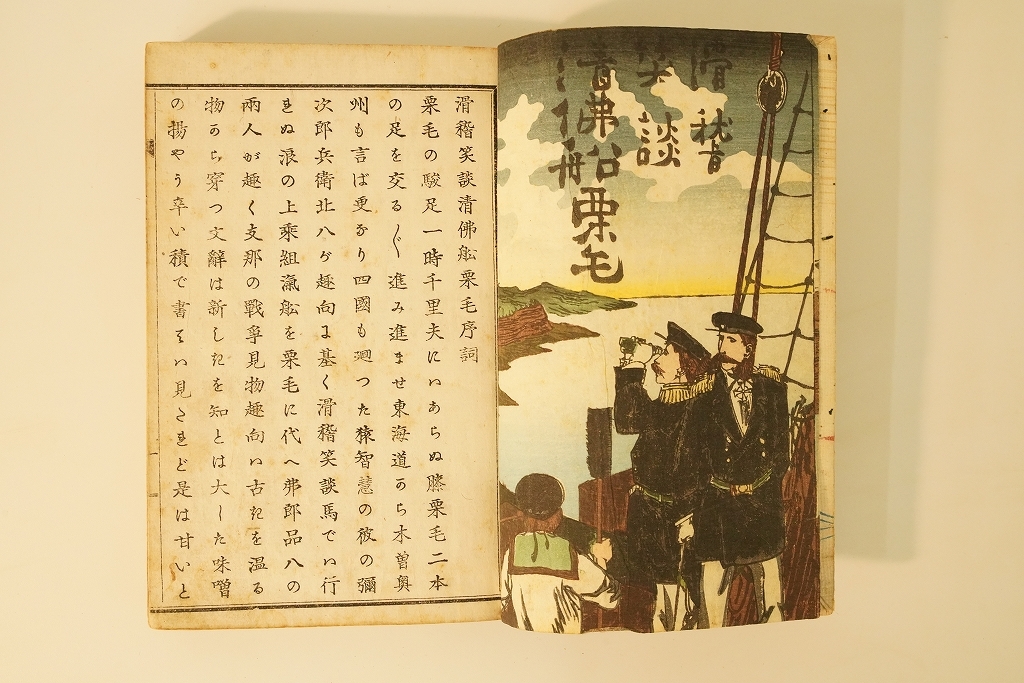 滑稽
笑談
清佛舩栗毛
滑稽笑談清佛舩栗毛序詞
栗毛の駿足一時千里夫にいあらぬ膝栗毛二本
の足を交る〴〵進み進ませ東海道から木曽奥
州も言ば更なり四國も廻つた猿智慧の彼の彌
次郎兵衛北八が趣向に基く滑稽笑談馬でい行
れぬ浪の上乘組滊舩を栗毛に代へ弗郎品八の
兩人が趣く支那の戰爭見物趣向い古きを温る
物から穿つ文辭は新しきを知とは大した味噌
の揚やう辛い積で書てい見たれど是は甘いと